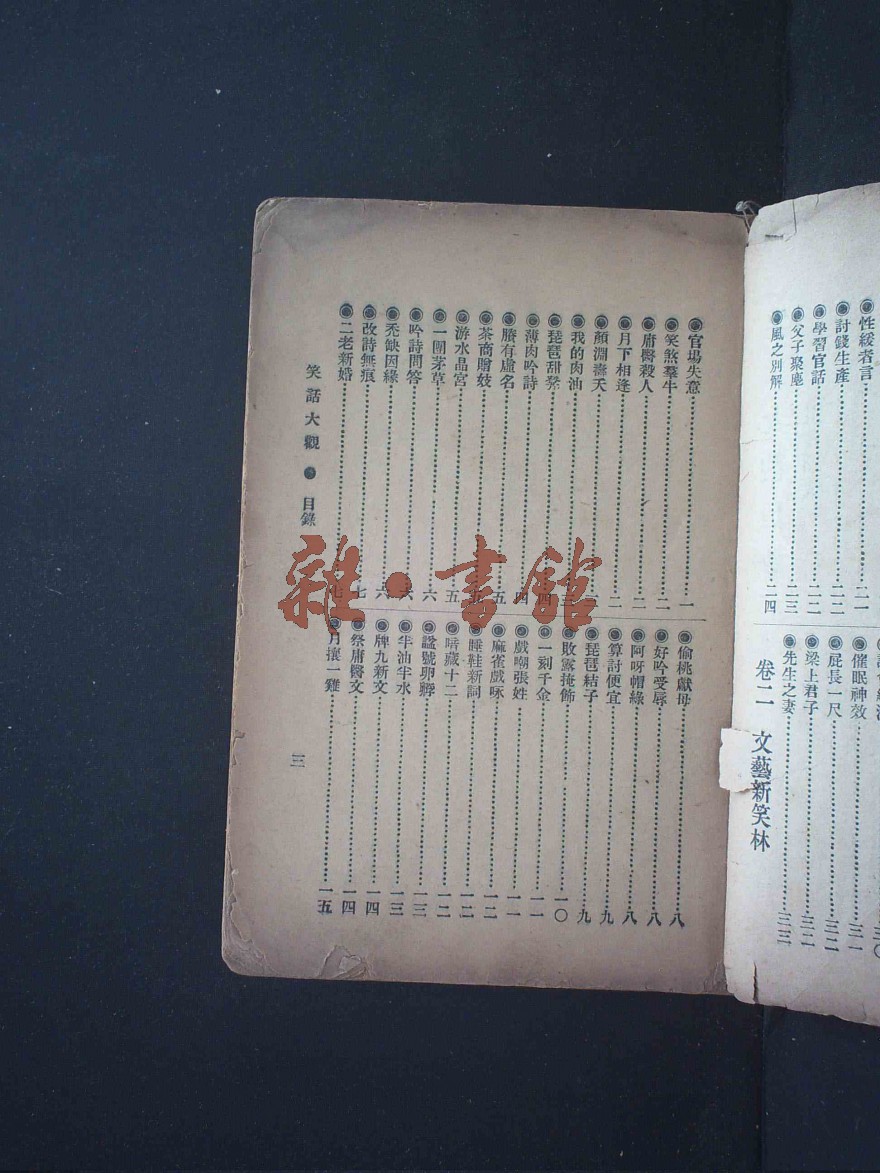 性緩者言……二一
討錢生產……二二
學習官話……二二
父子聚麀……二三
風之別解……二四
催眠神效……三一
屁長一尺……三二
梁上君子……三二
先生之妻……三三
卷二 文藝新笑林
官場失意……一
笑煞羣牛……二
庸醫殺人……二
月下相逢……二
顏淵壽夭
我的肉油
琵琶甜櫱……三
薄肉吟詩……四
賸有虛名……四
茶商贈妓……五
游水晶宮……五
一團茅草……五
吟詩問答……六
禿缺因緣……六
改詩無痕……七
二老新婚……七
偷桃獻母……八
好吟受辱……八
阿呀帽綠……八
算討便宜……九
琵琶結子……九
敗露掩飾……一〇
一刻千金……一一
戲嘲張姓……一一
麻雀戲咏……一二
睡鞋新詞……一二
暗藏十二……一二
諡號卵孵……一三
半油半水……一三
牌九新文……一四
祭庸醫文……一四
月攘一雞……一五
笑話大觀 目錄
三
雜·書館